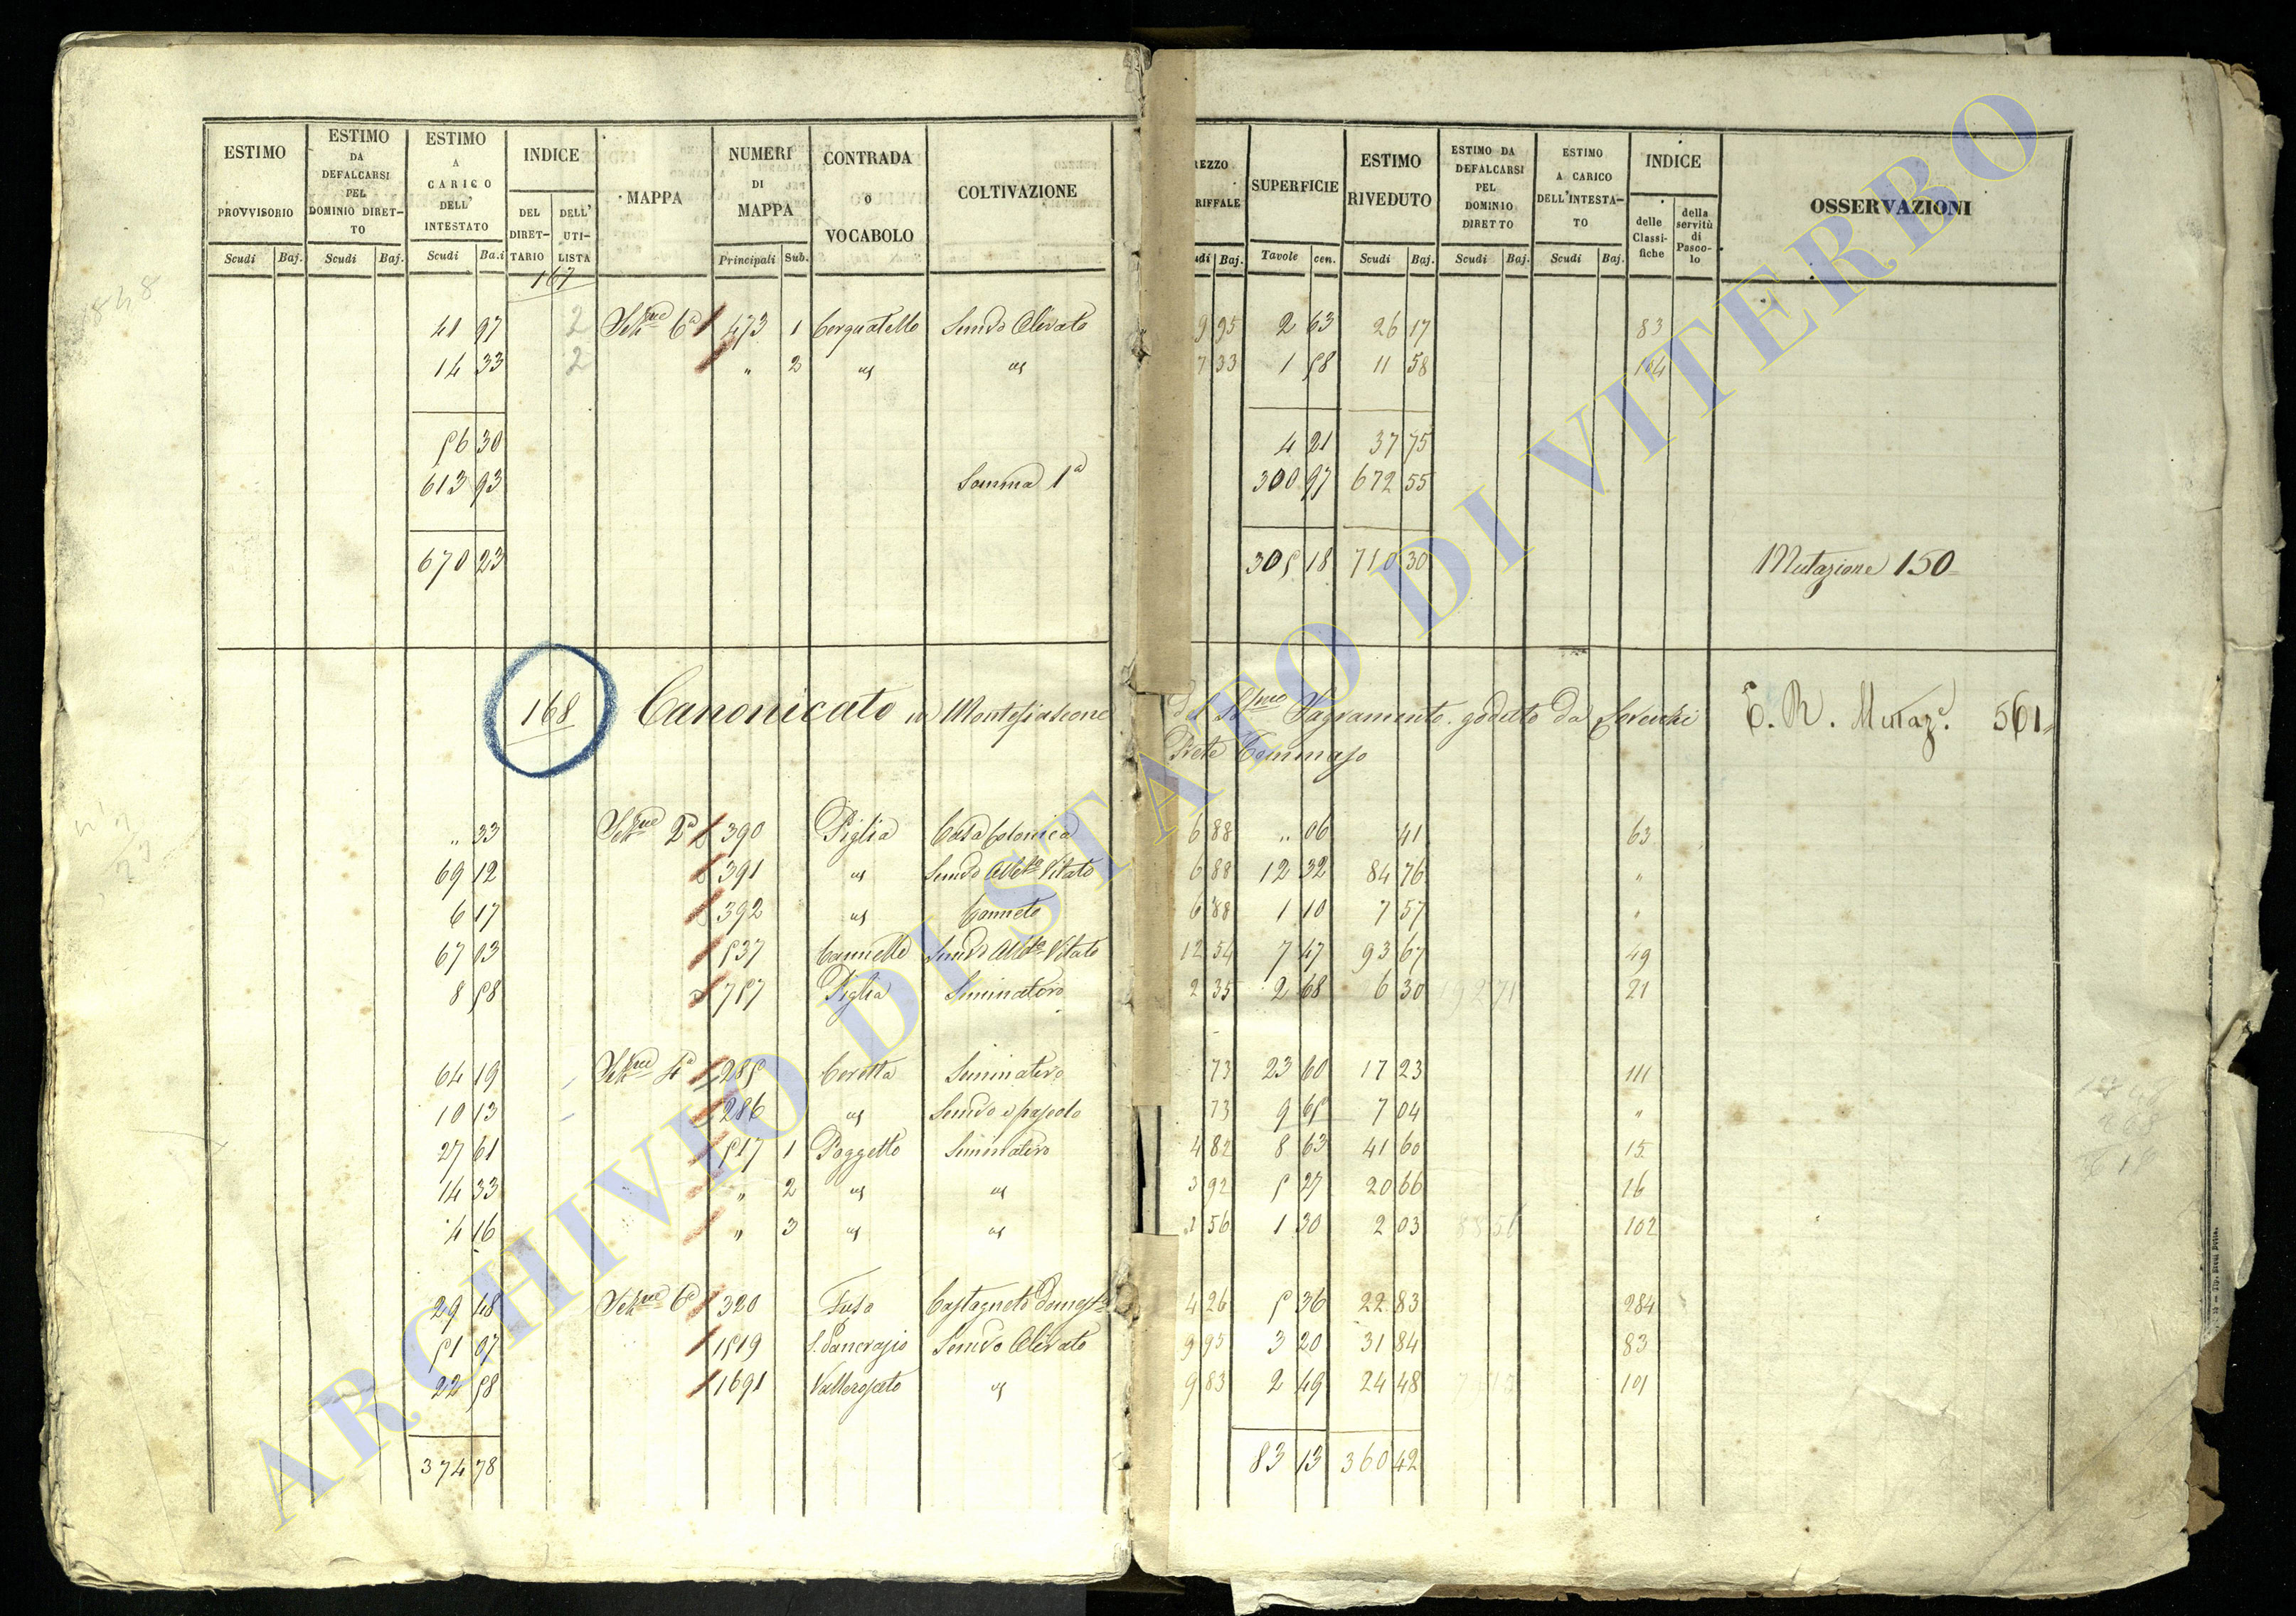 ESTIMO PROVVISORIO Scudi Baj. ESTIMO DA DEFALCARSI PEL DOMINIO DIRET-TO Scudi Baj. ESTIMO A CARICO DELL' INTESTATO Scudi Ba.i INDICE DEL DIRET-TARIO DELL' UTI-LISTA MAPPA NUMERI DI MAPPA Principali Sub. CONTRADA o VOCABOLO COLTIVAZIONE REZZO RIFFALE udi Baj. SUPERFICIE Tavole cen. ESTIMO RIVEDUTO Scudi Baj. ESTIMO DA DEFALCARSI PEL DOMINIO DIRETTO Scudi Baj. ESTIMO A CARICO DELL'INTESTA-TO Scudi Baj. INDICE delle Classi-fiche della servitù di Pasco-lo OSSERVAZIONI
167
41 97 2 Sez.ne 6a 473 1 Cerquatello Semvo Olivato 9 95 2 63 26 17 83
14 33 2 " 2 us us 7 33 1 58 11 58 104
56 30 4 21 37 75
613 93 Somma 1a 300 97 672 55
670 23 305 18 710 30 Mutazione 150
168 Canonicato in Montefiascone del SS.mo Sagramento goduto da T. R. Mutaz.e 561
Prete Tommaso
" 33 Sez.ne 2a 390 Piglia Casa Colonica 6 88 " 06 41 63
69 12 391 us Semvo Alb.to Vitato 6 88 12 32 84 76 "
6 17 392 us Canneto 6 88 1 10 7 57 "
67 03 537 Cannelle Semvo Alb.to Vitato 12 54 7 47 93 67 49
8 58 757 Piglia Seminativo 2 35 2 68 6 30 192 71 21
64 19 Sez.ne 4a 285 Ceretta Seminativo 73 23 60 17 23 111
10 13 286 us Semvo e pascolo 73 9 65 7 04 "
27 61 517 1 Poggetto Seminativo 4 82 8 63 41 60 15
14 33 " 2 us us 3 92 5 27 20 66 16
4 16 " 3 us us 1 56 1 30 2 03 88 56 102
29 48 Sez.ne 6a 320 Fuso Castagneto domest.o 4 26 5 36 22 83 284
51 07 1519 S. Pancrazio Semvo Olivato 9 95 3 20 31 84 83
22 58 1691 us 9 83 2 49 24 48 101
374 78 83 13 360 42
ARCHIVIO DI STATO DI VITERBO